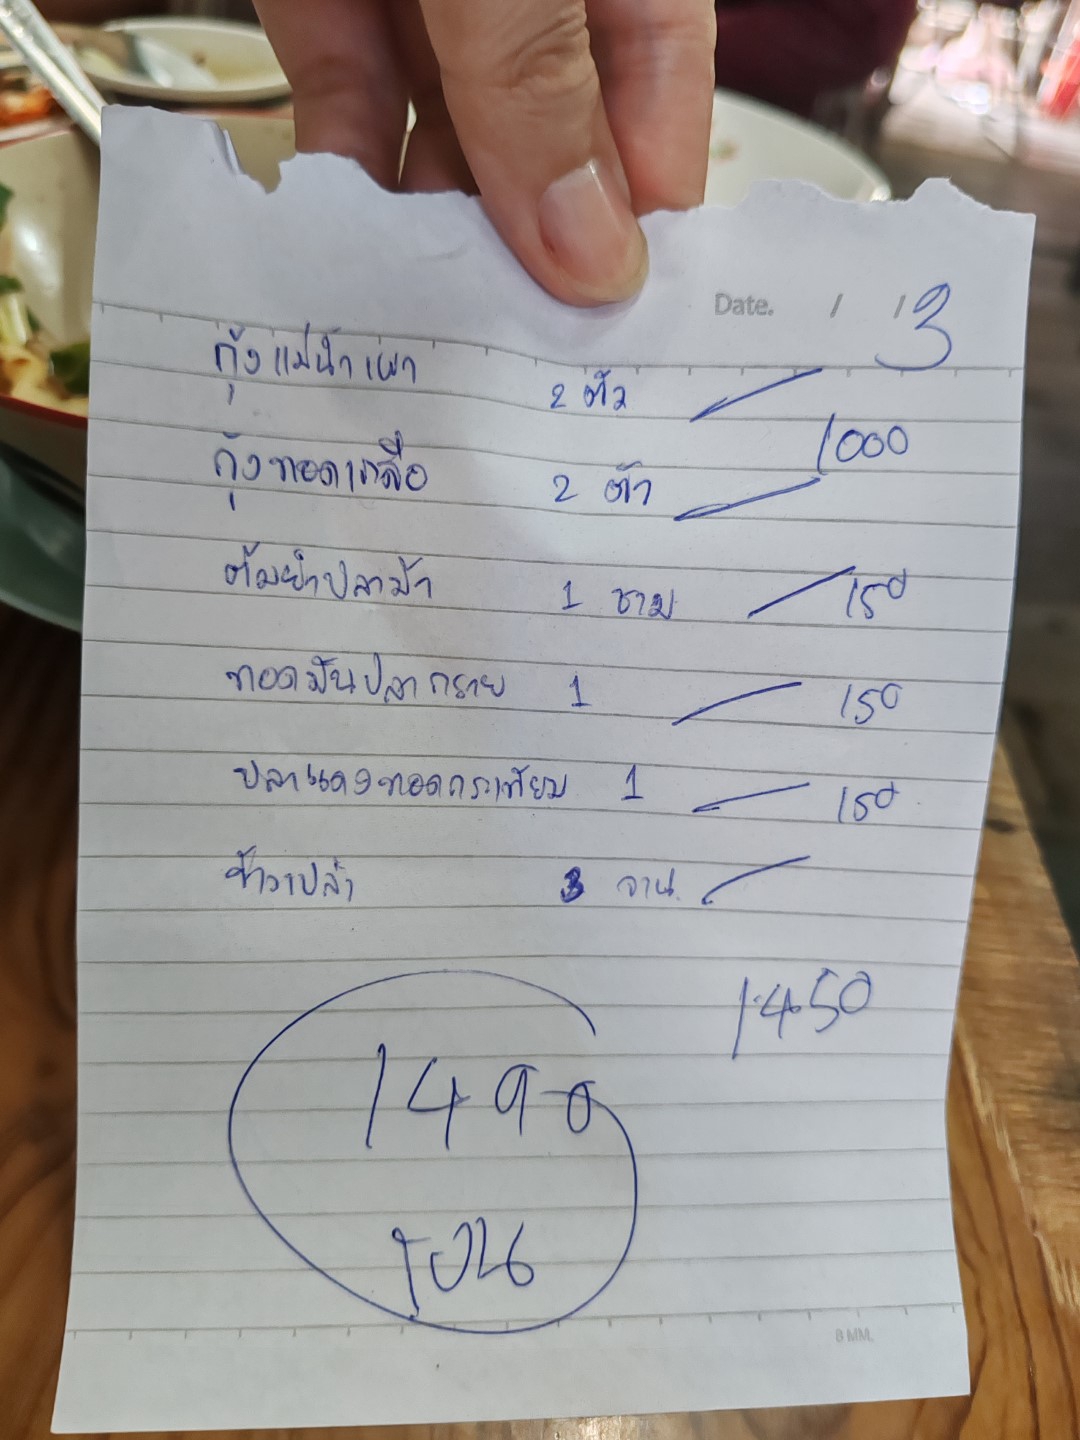 Date. / / 3
กุ้งแม่น้ำเผา 2 ตัว
1000
กุ้งทอดเกลือ 2 ตัว
ต้มยำปลาม้า 1 ชาม 150
ทอดมันปลากราย 1 150
ปลาแดงทอดกระเทียม 1 150
ข้าวเปล่า 3 จาน
1450
1490
โอน
8 MM.